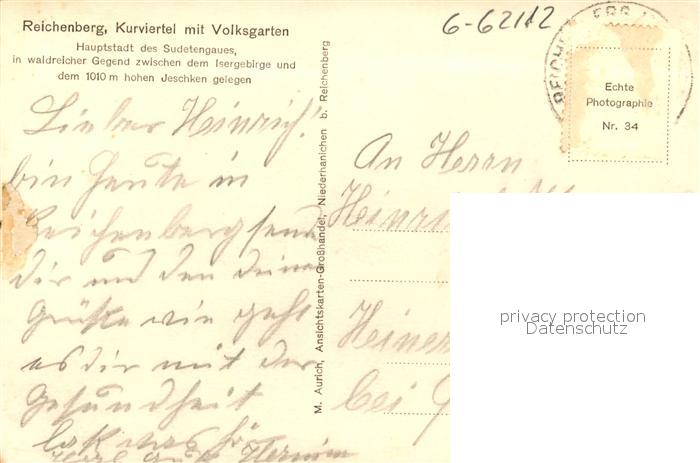 Reichenberg, Kurviertel mit Volksgarten
Hauptstadt des Sudetengaues,
in waldreicher Gegend zwischen dem Isergebirge und
dem 1010 m hohen Jeschken gelegen
6-62112
REICHE
Echte
Photographie
Nr. 34
Lieber Heinrich!
bin heute in
Reichenberg sende
dir und den deinen
Grüße wie geht
es dir mit der
Gesundheit
M. Aurich, Ansichtskarten-Großhandel, Niederhanichen b. Reichenberg
An Herrn
Heinri
Heiners
bei G
privacy protection
Datenschutz